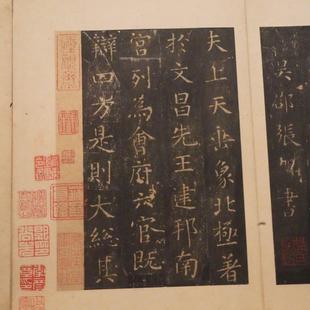 吴郡張旭書
夫上天垂象北極著
於文昌先王建邦南
宫列爲會府六官既
辯四方是則大總其